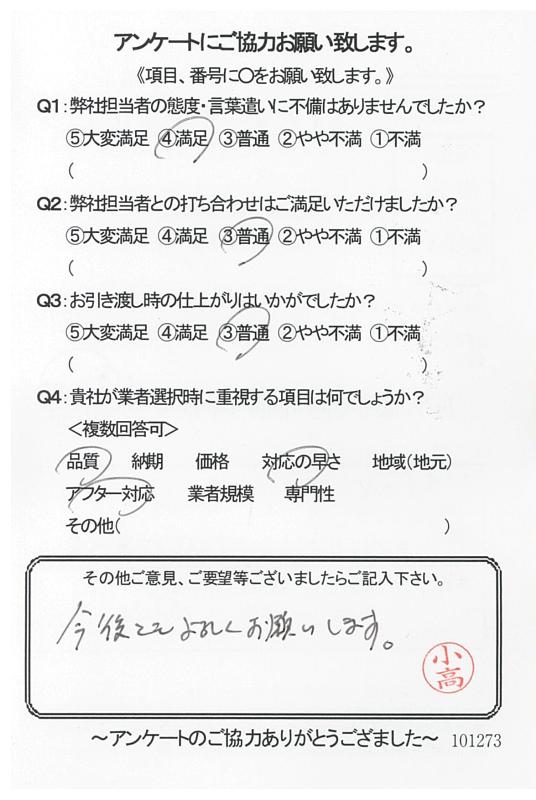 アンケートにご協力お願い致します。
《項目、番号に〇をお願い致します。》
Q1：弊社担当者の態度・言葉遣いに不備はありませんでしたか？
⑤大変満足 ④満足 ③普通 ②やや不満 ①不満
( )
Q2：弊社担当者との打ち合わせはご満足いただけましたか？
⑤大変満足 ④満足 ③普通 ②やや不満 ①不満
( )
Q3：お引き渡し時の仕上がりはいかがでしたか？
⑤大変満足 ④満足 ③普通 ②やや不満 ①不満
( )
Q4：貴社が業者選択時に重視する項目は何でしょうか？
＜複数回答可＞
品質 納期 価格 対応の早さ 地域(地元)
アフター対応 業者規模 専門性
その他( )
その他ご意見、ご要望等ございましたらご記入下さい。
今後ともよろしくお願いします。
小高
～アンケートのご協力ありがとうござました～ 101273